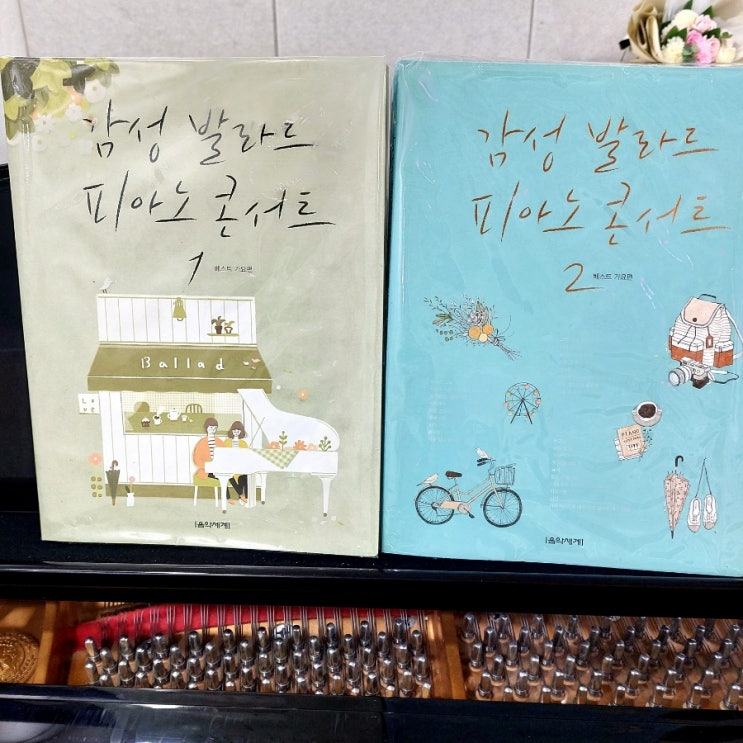 감성 발라드
피아노 콘서트
1 베스트 가요편
Ballad
음악세계
감성 발라드
피아노 콘서트
2 베스트 가요편
PIANO
음악세계